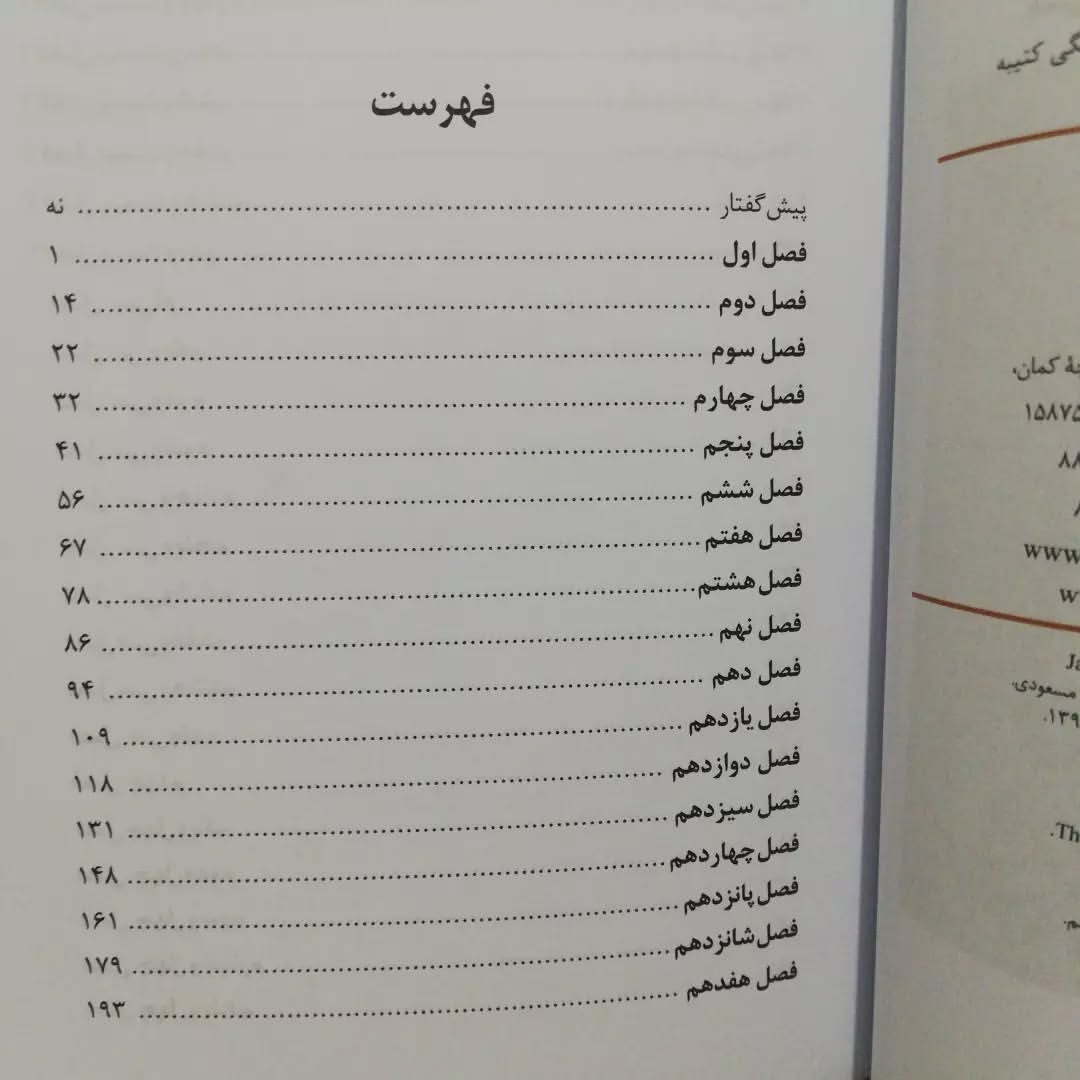 فهرست
پیش‌گفتار ........ نه
فصل اول ........ ۱
فصل دوم ........ ۱۴
فصل سوم ........ ۲۲
فصل چهارم ........ ۳۲
فصل پنجم ........ ۴۱
فصل ششم ........ ۵۶
فصل هفتم ........ ۶۷
فصل هشتم ........ ۷۸
فصل نهم ........ ۸۶
فصل دهم ........ ۹۴
فصل یازدهم ........ ۱۰۹
فصل دوازدهم ........ ۱۱۸
فصل سیزدهم ........ ۱۳۱
فصل چهاردهم ........ ۱۴۸
فصل پانزدهم ........ ۱۶۱
فصل شانزدهم ........ ۱۷۹
فصل هفدهم ........ ۱۹۳
کتیبه
کمان،
۱۵۸۷۵
۸۸
www
w
Ja
مسعودی.
۱۳۹
Th